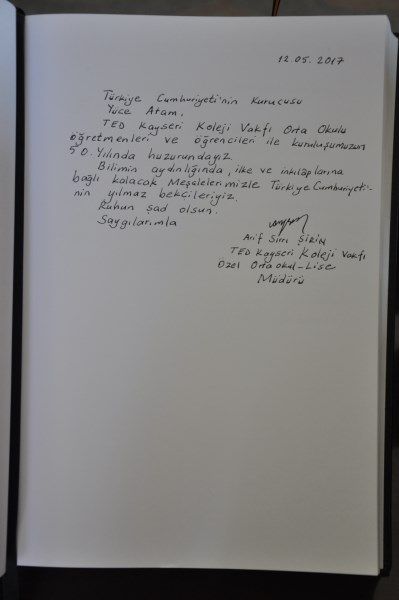 12.05.2017
Türkiye Cumhuriyeti'nin Kurucusu
Yüce Atam,
TED Kayseri Koleji Vakfı Orta Okulu
öğretmenleri ve öğrencileri ile kuruluşumuzun
50. Yılında huzurundayız.
Bilimin aydınlığında, ilke ve inkılaplarına
bağlı kalacak Meşalelerimizle Türkiye Cumhuriyeti'-
nin yılmaz bekçileriyiz.
Ruhun şad olsun.
Saygılarımla
Arif Sırrı ŞİRİN
TED Kayseri Koleji Vakfı
Özel Ortaokul-Lise
Müdürü